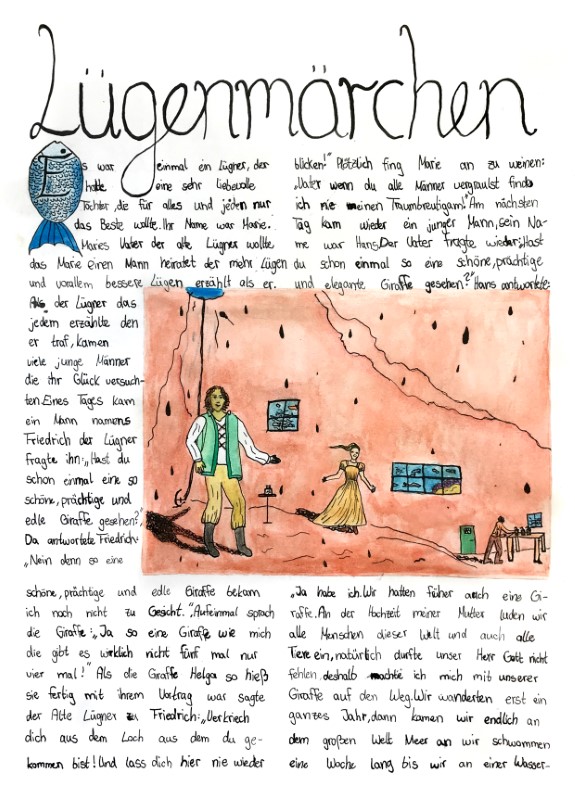 Lügenmärchen
Es war einmal ein Lügner, der
hatte eine sehr liebevolle
Tochter, die für alles und jeden nur
das Beste wollte. Ihr Name war Marie.
Maries Vater der alte Lügner wollte
das Marie einen Mann heiratet der mehr Lügen
und vorallem bessere Lügen erzählt als er.
Als der Lügner das
jedem erzählte den
er traf, kamen
viele junge Männer
die ihr Glück versuch-
ten. Eines Tages kam
ein Mann namens
Friedrich der Lügner
fragte ihn: „Hast du
schon einmal eine so
schöne, prächtige und
edle Giraffe gesehen?"
Da antwortete Friedrich:
„Nein denn so eine
schöne, prächtige und edle Giraffe bekam
ich noch nicht zu Gesicht." Aufeinmal sprach
die Giraffe: „Ja so eine Giraffe wie mich
die gibt es wirklich nicht fünf mal nur
vier mal!" Als die Giraffe Helga so hieß
sie fertig mit ihrem Vortrag war sagte
der Alte Lügner zu Friedrich: „Verkriech
dich aus dem Loch aus dem du ge-
kommen bist! Und lass dich hier nie wieder
blicken!" Plötzlich fing Marie an zu weinen:
„Vater wenn du alle Männer vergraulst finde
ich nie meinen Traumbreutigam!" Am nächsten
Tag kam wieder ein junger Mann, sein Na-
me war Hans. Der Vater fragte wieder: „Hast
du schon einmal so eine schöne, prächtige
und elegante Giraffe gesehen?" Hans antwortete:
„Ja habe ich. Wir hatten früher auch eine Gi-
raffe. An der Hochzeit meiner Mutter luden wir
alle Menschen dieser Welt und auch alle
Tiere ein, natürlich durfte unser Herr Gott nicht
fehlen, deshalb machte ich mich mit unserer
Giraffe auf den Weg. Wir wanderten erst ein
ganzes Jahr, dann kamen wir endlich an
dem großen Welt Meer an wir schwammen
eine Woche lang bis wir an einer Wasser-